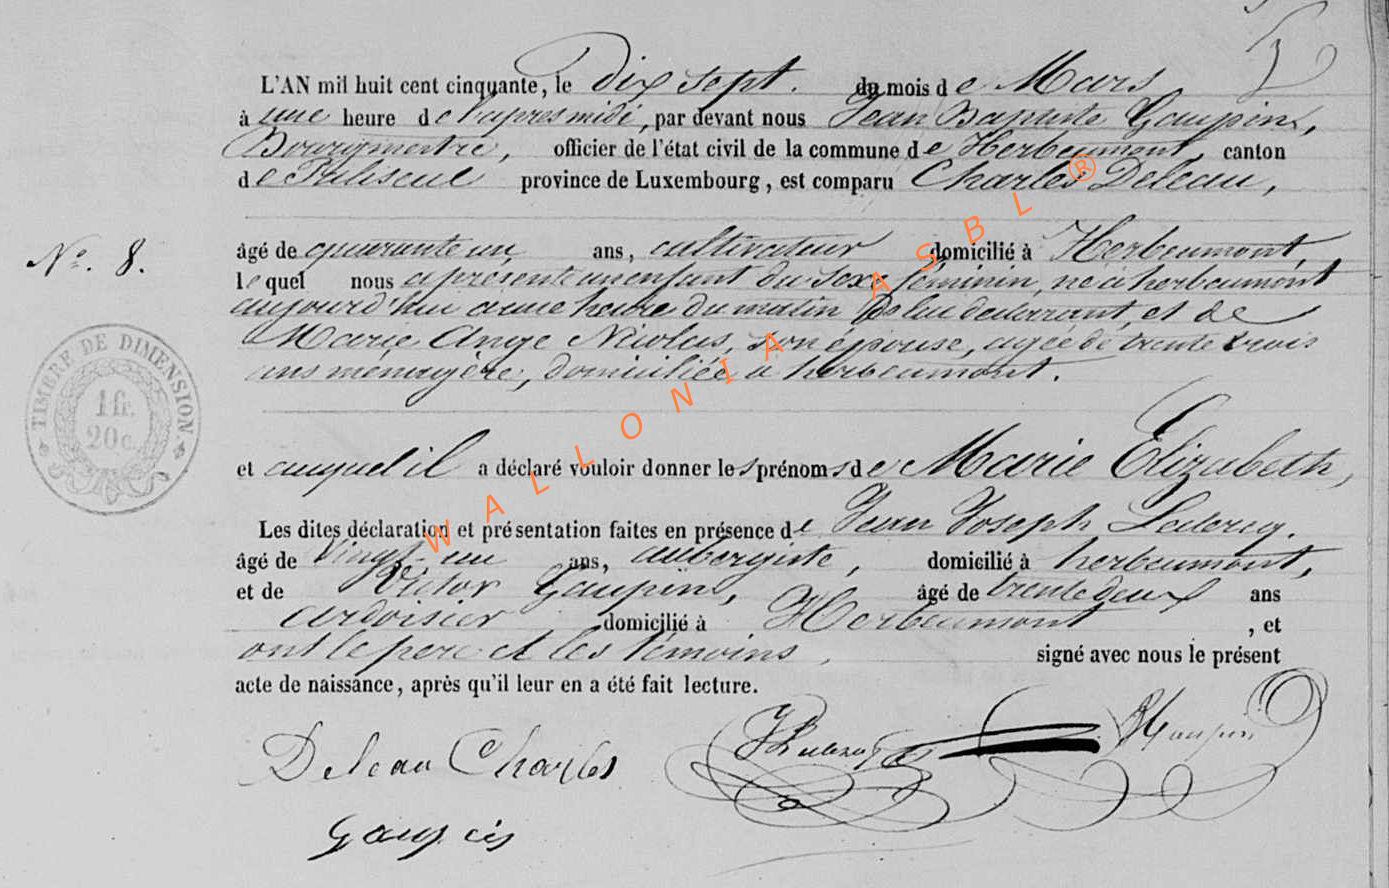 L'AN mil huit cent cinquante, le Dix sept. du mois de Mars
à une heure de l'après midi, par devant nous Jean Baptiste Gaupin,
Bourgmestre, officier de l'état civil de la commune de Herbeumont, canton
de Paliseul province de Luxembourg, est comparu Charles Deleau,
N°. 8.
âgé de quarante un ans, cultivateur domicilié à Herbeumont,
lequel nous a présenté un enfant du sexe féminin, né à herbeumont
aujourd'hui à une heure du matin de lui déclarant, et de
Marie Ange Nicolas, son épouse, agée de trente trois
ans ménagère, domiciliée à herbeumont.
TIMBRE DE DIMENSION
1 fr.
20 c.
et auquel il a déclaré vouloir donner les prénoms de Marie Elizabeth,
Les dites déclaration et présentation faites en présence de Jean Joseph Leclercq.
âgé de vingt un ans, aubergiste, domicilié à herbeumont,
et de Victor Gaupin, âgé de trente deux ans
ardoisier domicilié à Herbeumont, et
ont le père et les témoins, signé avec nous le présent
acte de naissance, après qu'il leur en a été fait lecture.
Deleau Charles
Gaupin
WALLONIA ASBL ®